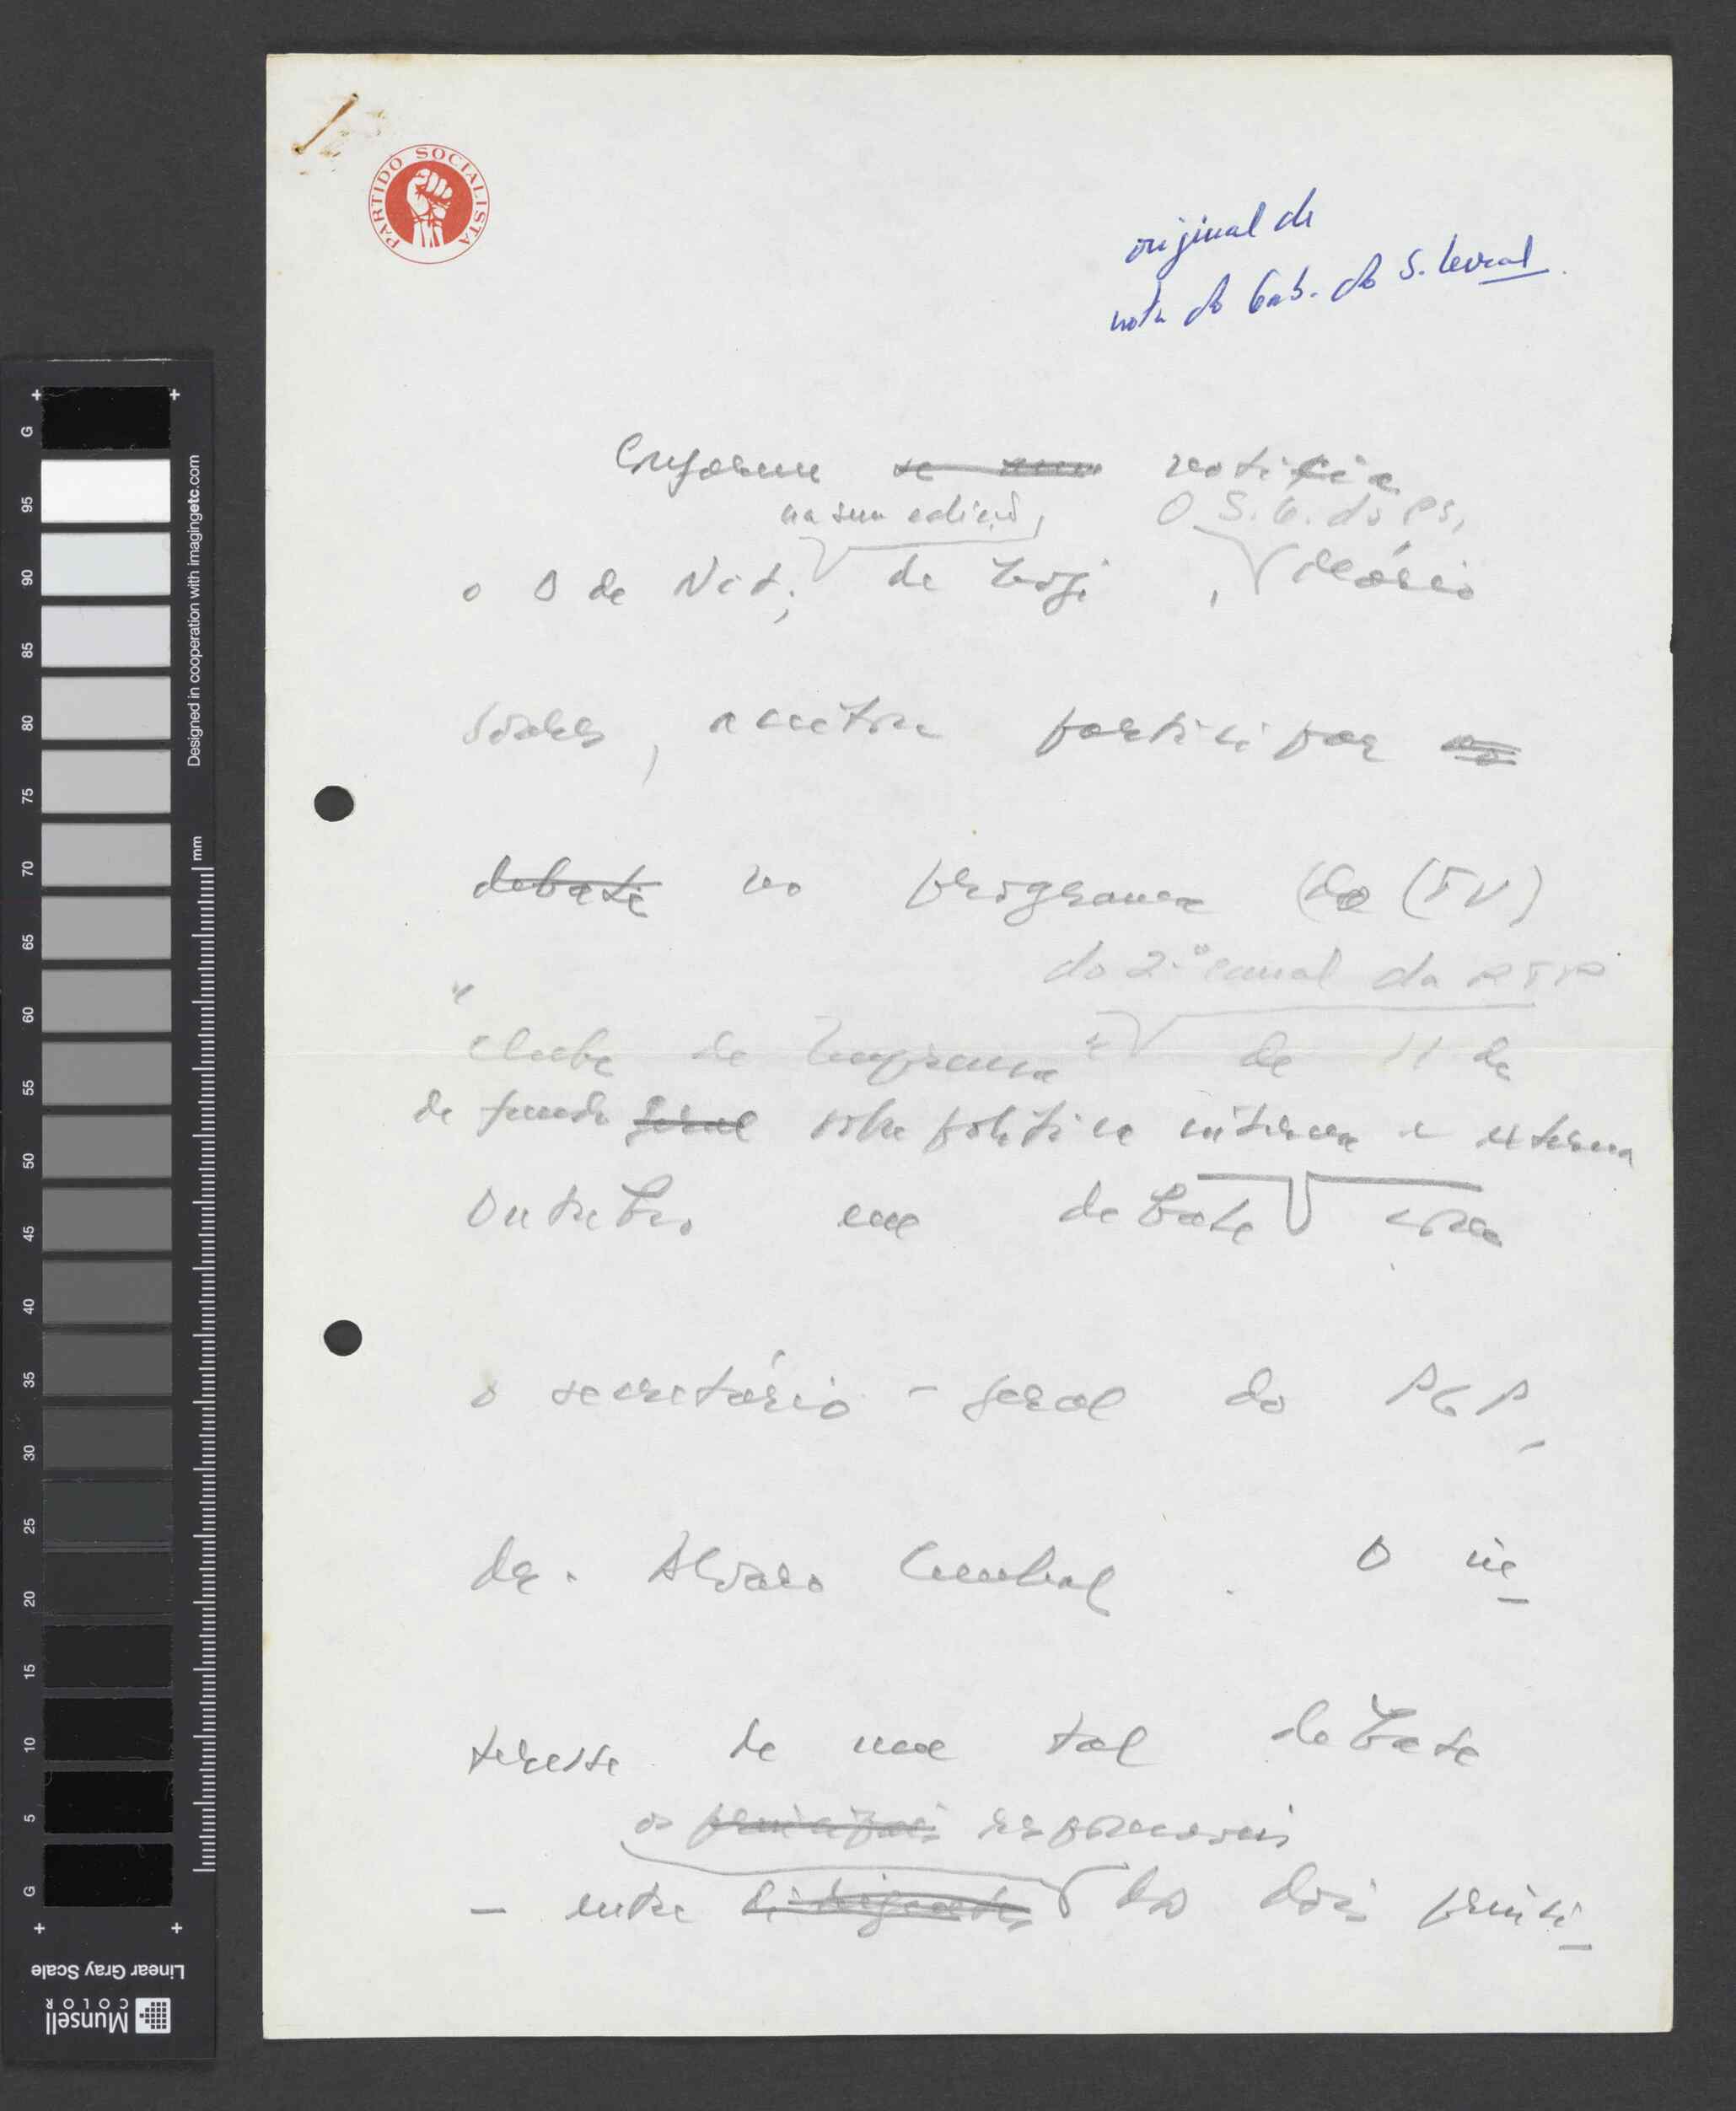 PARTIDO SOCIALISTA
original de
nota do Gab. do S. Geral
Conforme se noticia
na sua edição, O S.G. do PS,
o D de Not, de hoje, Mário
Soares, aceitou participar no
debate no programa (da (TV)
do 2.º canal da RTP
"Clube de Imprensa" de 11 de
de fundo geral sobre política interna e externa
Outubro em debate com
o secretário-geral do PCP,
dr. Álvaro Cunhal. O in-
teresse de um tal debate
os principais responsáveis
- entre dirigentes dos dois princi-
Designed in cooperation with imagingetc.com
mm
G
95
90
85
80
75
70
65
60
55
50
45
40
35
30
25
20
15
10
5
G
Linear Gray Scale
Munsell
COLOR